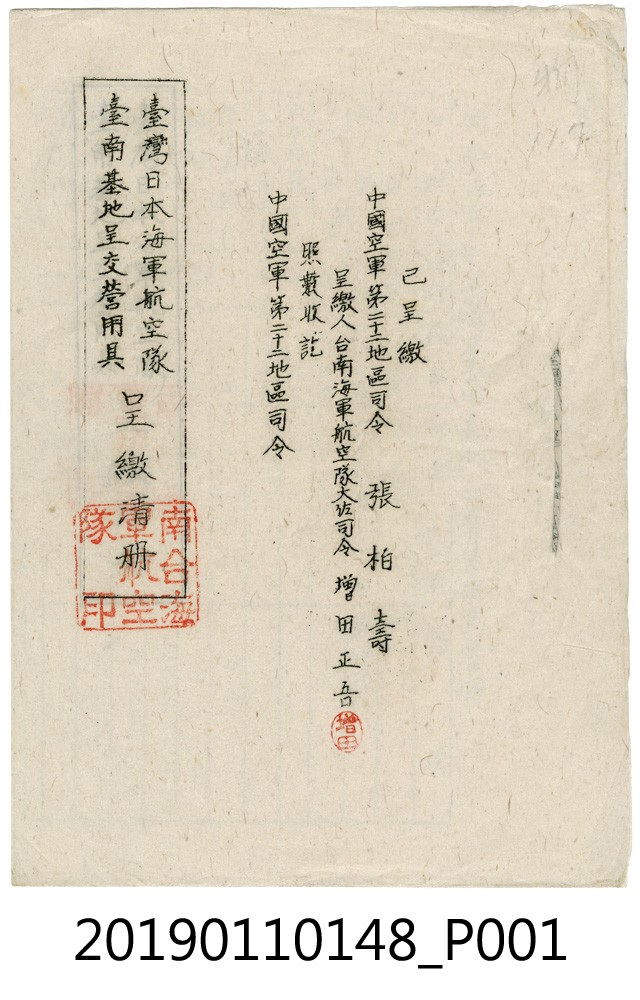 已呈繳
中國空軍第二十二地區司令 張柏壽
呈繳人台南海軍航空隊大佐司令 增田正吾
增田
照數收訖
中國空軍第二十二地區司令
臺灣日本海軍航空隊
臺南基地呈交營用具
呈繳清册
南台海
軍航空
隊印
20190110148_P001